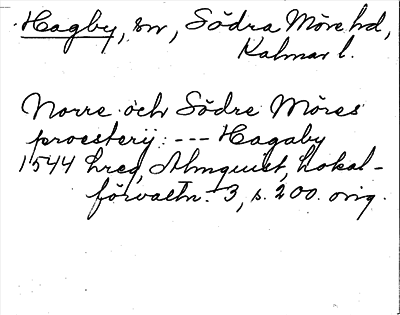 Hagby, sn, Södra Möre hd,
Kalmar l.
Norre och Södre Möres
proesterij: --- Hagaby
1544 hreg, Almquist, Lokal-
förvaltn. 3, s. 200. orig.